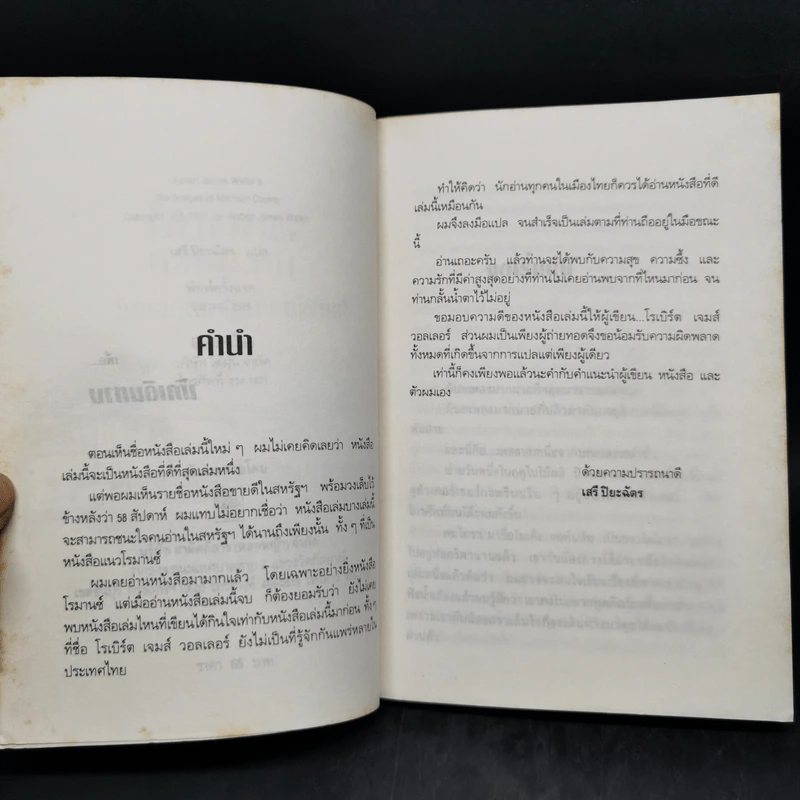 คำนำ
ตอนเห็นชื่อหนังสือเล่มนี้ใหม่ ๆ ผมไม่เคยคิดเลยว่า หนังสือ
เล่มนี้จะเป็นหนังสือที่ดีที่สุดเล่มหนึ่ง
แต่พอผมเห็นรายชื่อหนังสือขายดีในสหรัฐฯ พร้อมวงเล็บไว้
ข้างหลังว่า 58 สัปดาห์ ผมแทบไม่อยากเชื่อว่า หนังสือเล่มบางเล่มนี้
จะสามารถชนะใจคนอ่านในสหรัฐฯ ได้นานถึงเพียงนั้น ทั้ง ๆ ที่เป็น
หนังสือแนวโรมานซ์
ผมเคยอ่านหนังสือมามากแล้ว โดยเฉพาะอย่างยิ่งหนังสือ
โรมานซ์ แต่เมื่ออ่านหนังสือเล่มนี้จบ ก็ต้องยอมรับว่า ยังไม่เคย
พบหนังสือเล่มไหนที่เขียนได้กินใจเท่ากับหนังสือเล่มนี้มาก่อน ทั้ง ๆ
ที่ชื่อ โรเบิร์ต เจมส์ วอลเลอร์ ยังไม่เป็นที่รู้จักกันแพร่หลายใน
ประเทศไทย
ทำให้คิดว่า นักอ่านทุกคนในเมืองไทยก็ควรได้อ่านหนังสือที่ดี
เล่มนี้เหมือนกัน
ผมจึงลงมือแปล จนสำเร็จเป็นเล่มตามที่ท่านถืออยู่ในมือขณะ
นี้
อ่านเถอะครับ แล้วท่านจะได้พบกับความสุข ความซึ้ง และ
ความรักที่มีค่าสูงสุดอย่างที่ท่านไม่เคยอ่านพบจากที่ไหนมาก่อน จน
ท่านกลั้นน้ำตาไว้ไม่อยู่
ขอมอบความดีของหนังสือเล่มนี้ให้ผู้เขียน...โรเบิร์ต เจมส์
วอลเลอร์ ส่วนผมเป็นเพียงผู้ถ่ายทอดจึงขอน้อมรับความผิดพลาด
ทั้งหมดที่เกิดขึ้นจากการแปลแต่เพียงผู้เดียว
เท่านี้ก็คงเพียงพอแล้วนะคำกับคำแนะนำผู้เขียน หนังสือ และ
ตัวผมเอง
ด้วยความปรารถนาดี
เสรี ปิยะฉัตร